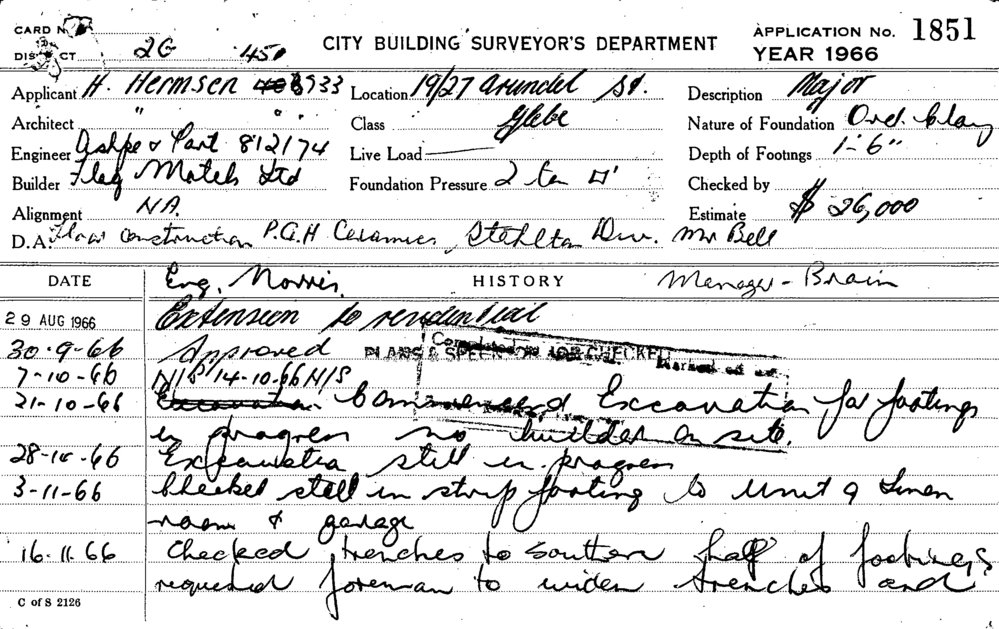 CARD No.
DISTRICT 2G 450 CITY BUILDING SURVEYOR'S DEPARTMENT APPLICATION No. 1851
YEAR 1966
Applicant H. Hermsen 933 Location 19/27 Arundel St. Description Major
Architect " " " Class Glebe Nature of Foundation Ord. Clay
Engineer & Part 812174 Live Load Depth of Footings 1'-6"
Builder Flag Motels Ltd Foundation Pressure 2 ton □' Checked by
Alignment NA. Estimate $26,000
D.A. Floor Construction P.G.H Ceramics Stahlton Div. Mr Bell
DATE Eng. Norris. HISTORY Manager - Brain
29 AUG 1966 Extension to residential
30-9-66 Approved PLANS & ON JOB CHECKED
7-10-66 N/S 14-10-66 N/S
21-10-66 Excavation. Commenced Excavation for footings
in progress no builder on site.
28-10-66 Excavation still in progress
3-11-66 Checked steel in strip footing to Unit 9 Linen
room & garage
16.11.66 Checked trenches to southern half of footings
requested foreman to widen trenches and
C of S 2126